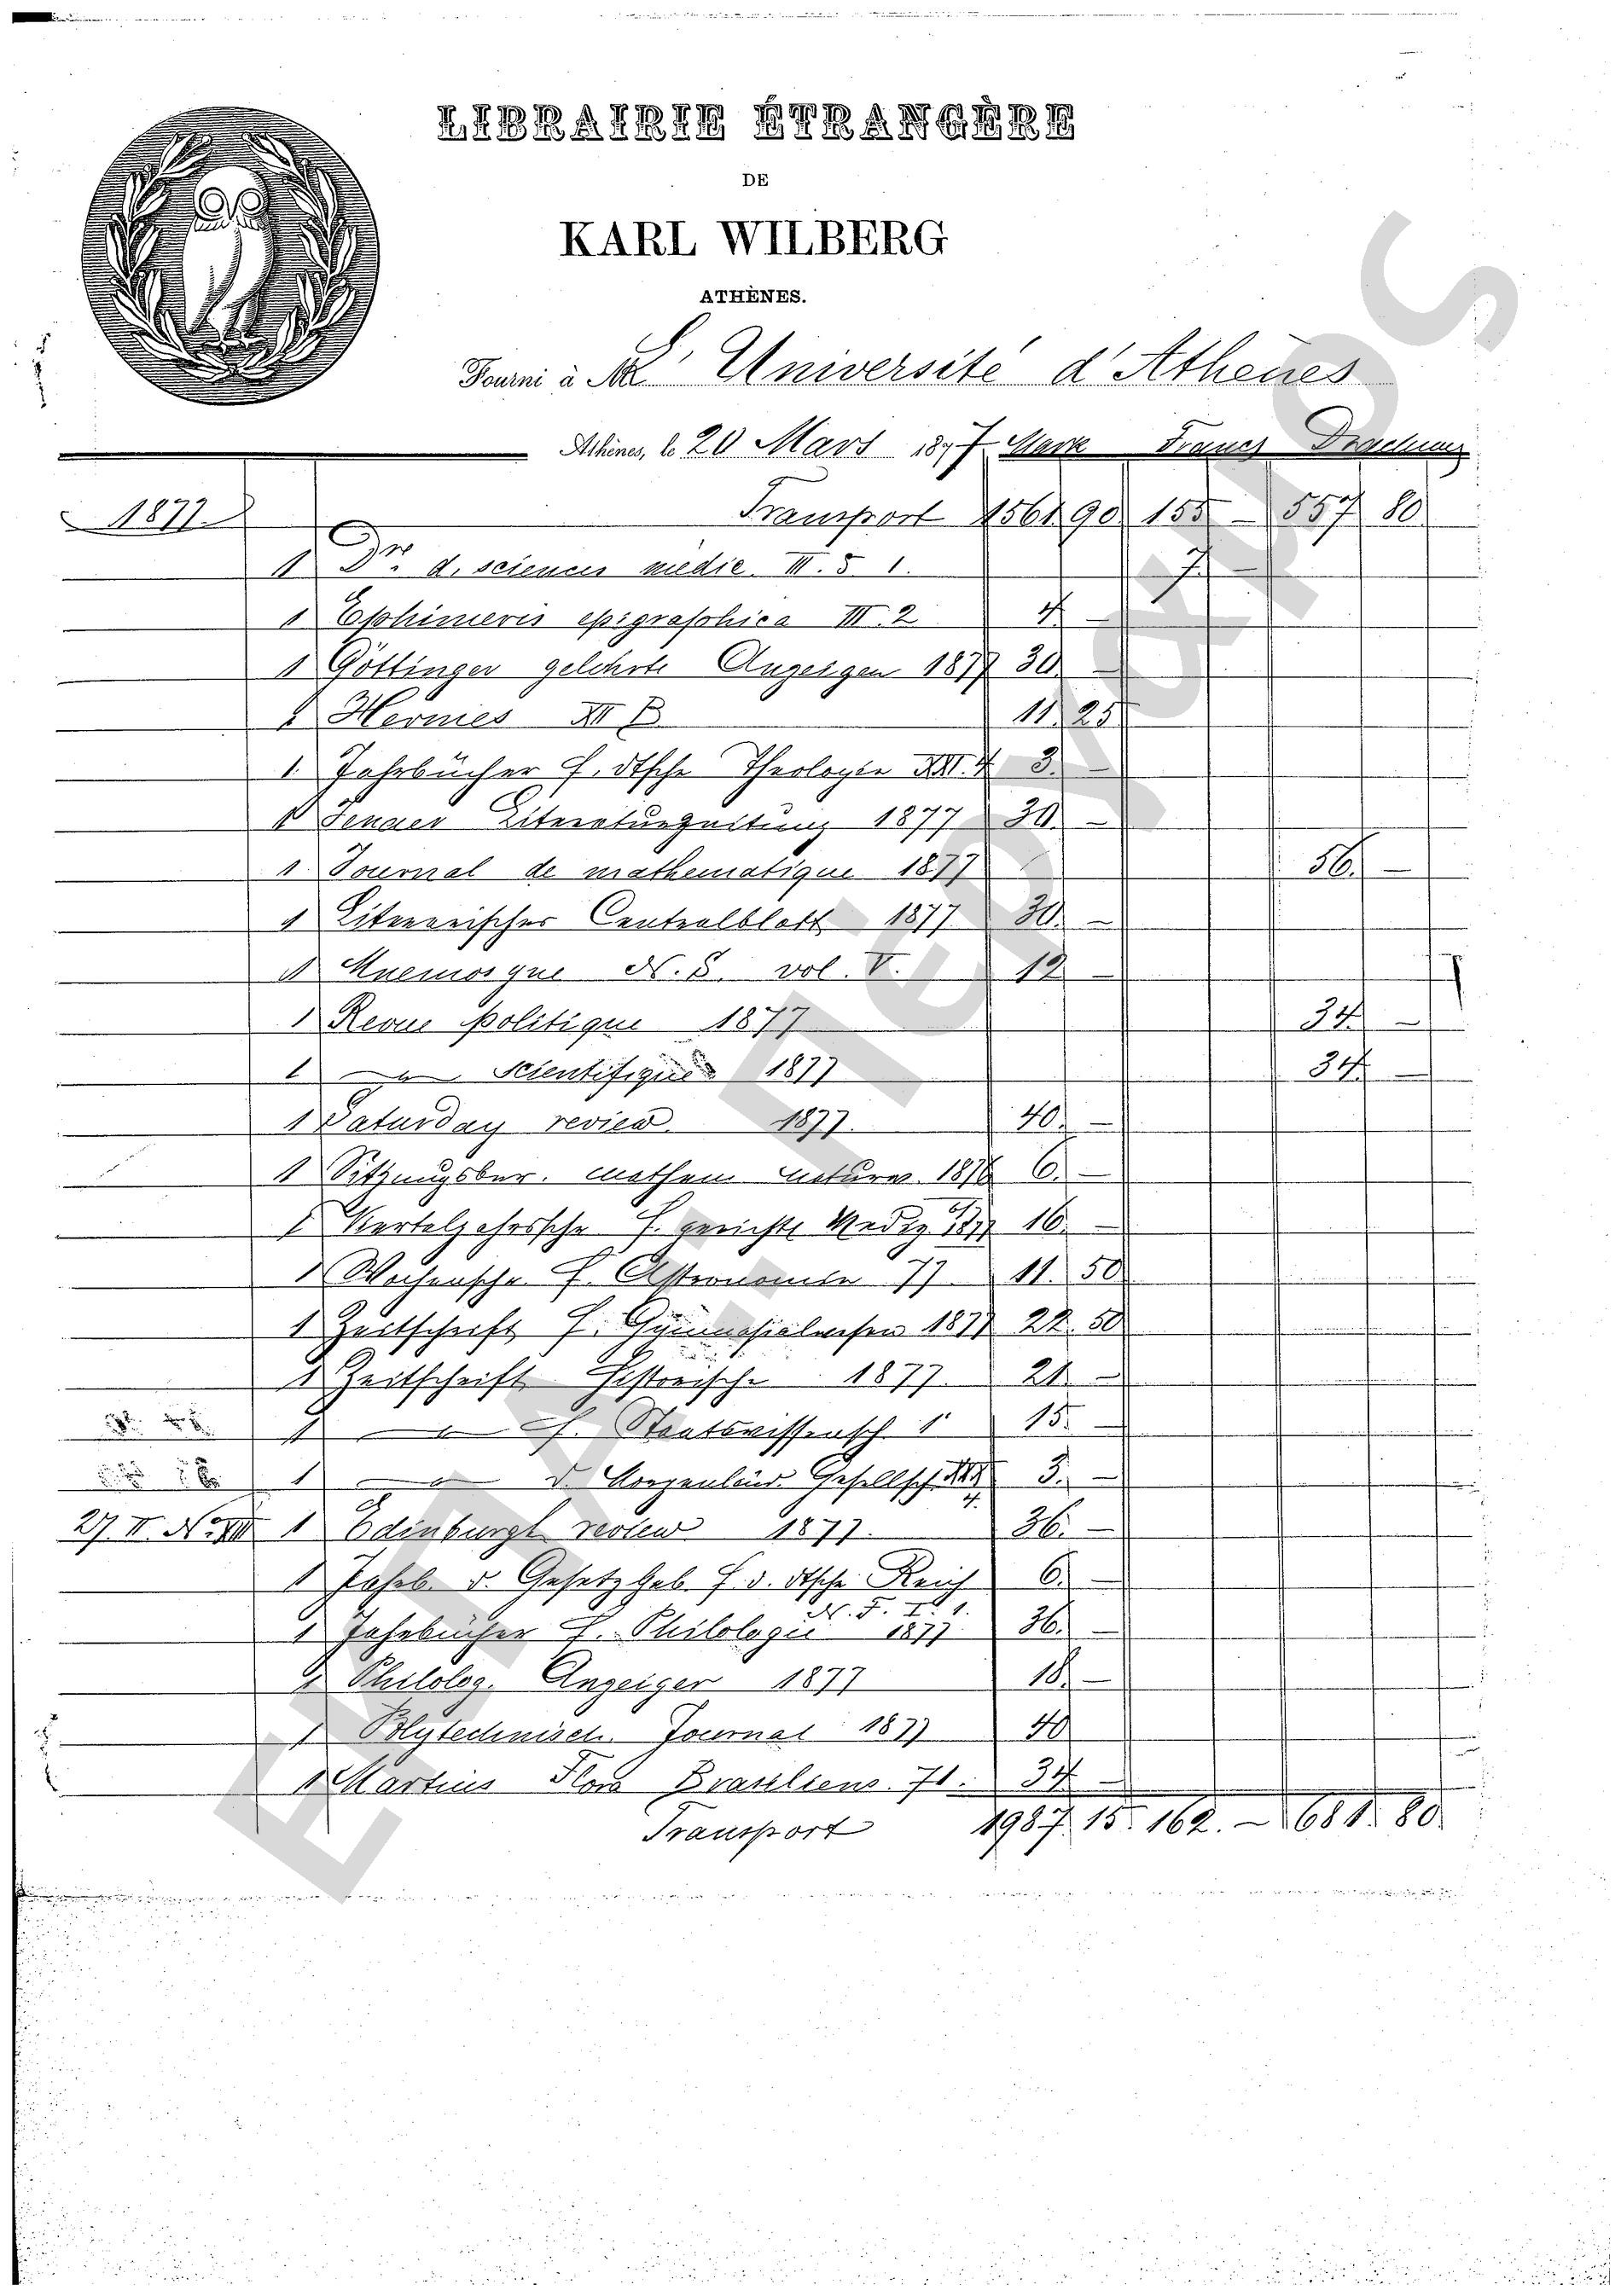 LIBRAIRIE ÉTRANGÈRE
DE
KARL WILBERG
ATHÈNES.
Fourni à L' Université d'Athènes
Athènes, le 20 Mars 1877 Mark Francs Drachmes
1877. Transport 1561 90 155 — 557 80
1 D<sup>re</sup> d. sciences médic. III. 5 1. 7. —
1 Ephimeris epigraphica III. 2 4 —
1 Göttinger gelehrte Anzeigen 1877 30. —
1 Hermes XII B 11. 25
1. Jahrbücher f. dtsche Theologie XXI. 4 3. —
1 Jenaer Literaturzeitung 1877 30. —
1. Journal de mathematique 1877 56. —
1 Literarisches Centralblatt 1877 30. —
1 Mnemosyne N. S. vol. V. 12 —
1 Revue politique 1877 34. —
1 —"— scientifique 1877 34. —
1 Saturday review. 1877. 40. —
1 Sitzungsber. mathem. naturw. 1876 6. —
1 Vierteljahrssche f. gerichtl Mediz. 1877 16. —
1 Wochensche f. Astronomie 77 11. 50
1 Zeitschrift f. Gymnasialwesen 1877 22. 50
1 Zeitschrift Historische 1877. 21. —
1 —"— f. Staatswissensch. 1 15. —
1 —"— d. Morgenländ. Gesellsch. XXX 4. 3. —
27. II. No. XIII 1 Edinburgh review 1877. 36. —
1 Jahrb. d. Gesetzgeb. f. d. dtsche Reich 6. —
N. F. I. 1.
1 Jahrbücher f. Philologie 1877. 36. —
1 Philolog. Anzeiger 1877 18. —
1 Polytechnisch. Journal 1877 40
1 Martius Flora Brasiliens. 71. 34 —
Transport 1987. 15. 162. — 681. 80
ΕΚΠΑ - Ιστορικό Αρχείο